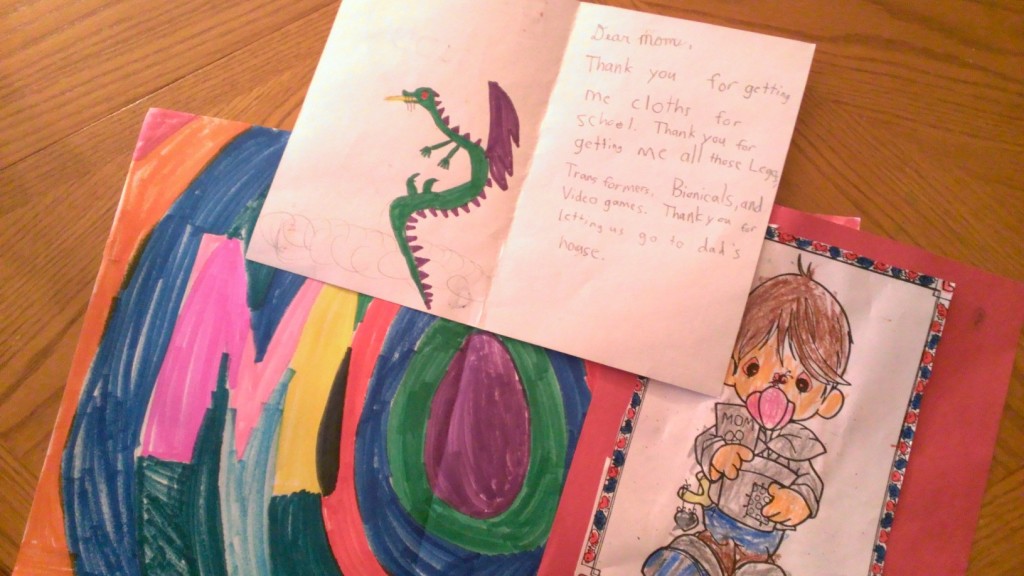 Dear mom,
Thank you for getting
me cloths for
school. Thank you for
getting me all those Legos,
Transformers, Bionicals, and
Video games. Thank you for
letting us go to dad's
house.
MO
MOM